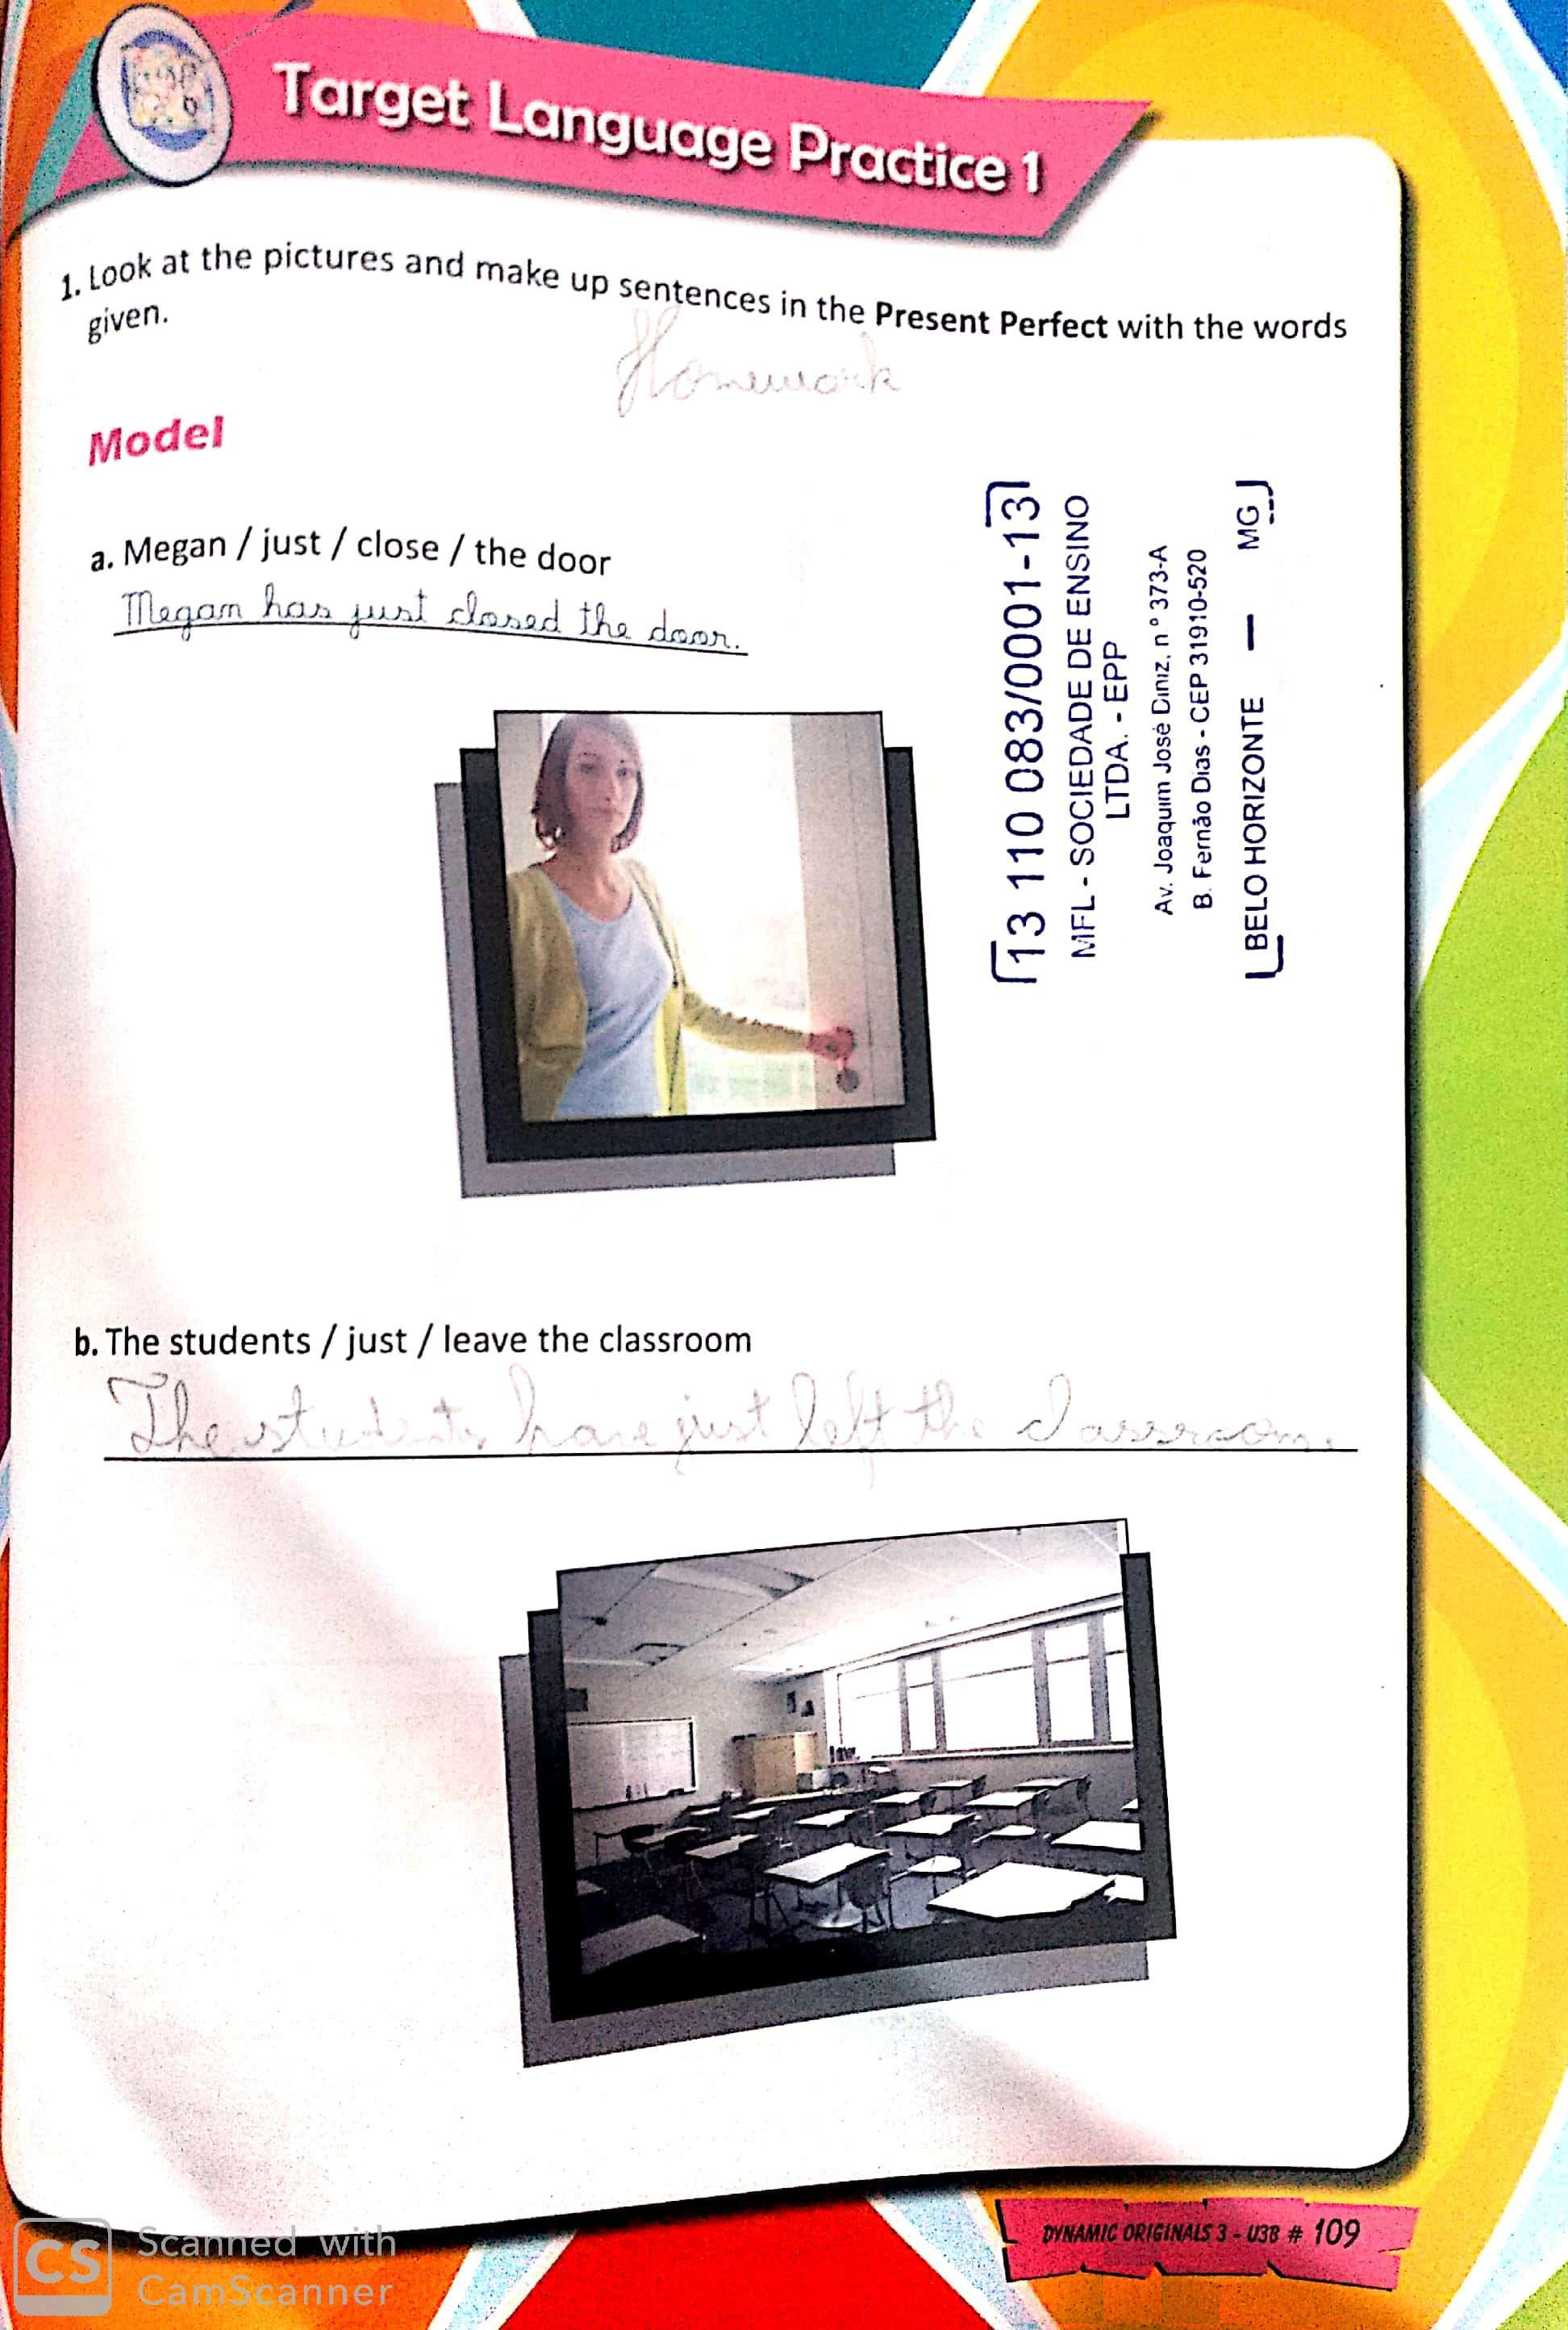 Target Language Practice 1
1. Look at the pictures and make up sentences in the Present Perfect with the words
given.
Homework
Model
a. Megan / just / close / the door
Megan has just closed the door.
13 110 083/0001-13
MFL - SOCIEDADE DE ENSINO
LTDA. - EPP
Av. Joaquim José Diniz, n º 373-A
B. Fernão Dias - CEP 31910-520
BELO HORIZONTE — MG
b. The students / just / leave the classroom
The students have just left the classroom.
DYNAMIC ORIGINALS 3 - U3B # 109
CS
Scanned with
CamScanner